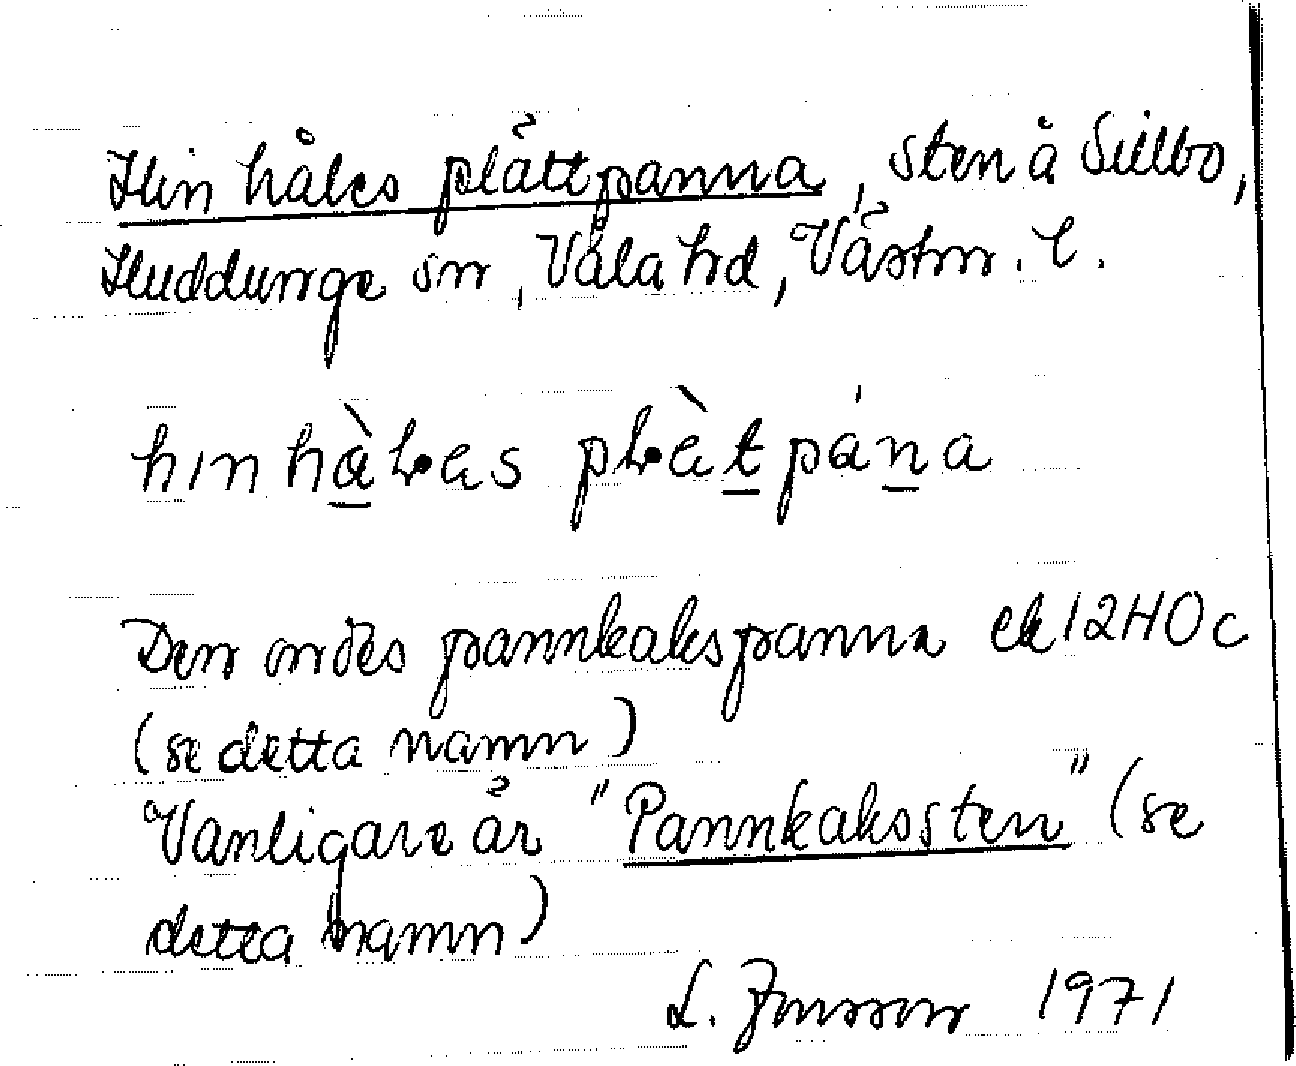 Hin håles plättpanna, sten å Sillbo,
Huddunge sn, Våla hd, Västm. l.
hın hàLes pLètpána
Den ondes pannkakspanna ek 12H0c
(se detta namn)
Vanligare är "Pannkakssten" (se
detta namn)
L. Jonsson 1971